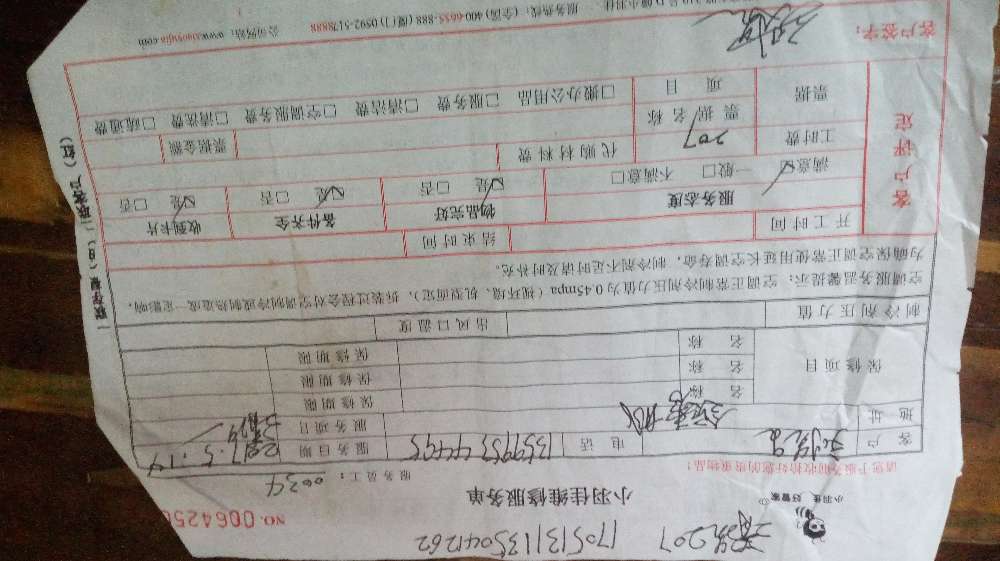 170513113504262
小羽佳 好管家
小羽佳维修服务单
NO. 0064256
请您于服务前收拾好您的贵重物品!
服务员工: 0034
客户
电话 13595344495
服务日期 2017.5.14
地址
服务项目
保修项目
名称 保修期限
名称 保修期限
名称 保修期限
制冷剂压力值 出风口温度
空调服务温馨提示: 空调正常制冷剂压力值为0.45mpa(视环境、机型而定),拆装过程会对空调制冷或制热造成一定影响,
为确保空调正常使用延长空调寿命,制冷剂不足时请及时补充。
开工时间 结束时间
客户评定
服务态度 物品完好 备件齐全 收到卡片
满意☑ 一般□ 不满意□ ☑是 □否 ☑是 □否 ☑是 □否
工时费 207 代购材料费 票据金额
票据 票据名称
项目 □搬办公用品 □服务费 □清洁费 □空调服务费 □清洗费 □疏通费
客户签字:
服务热线:(全国)400-6655-888 (厦门)0592-5178888 公司网站:www.xiaoyujia.com
一联存根(白) 二联客户(红)